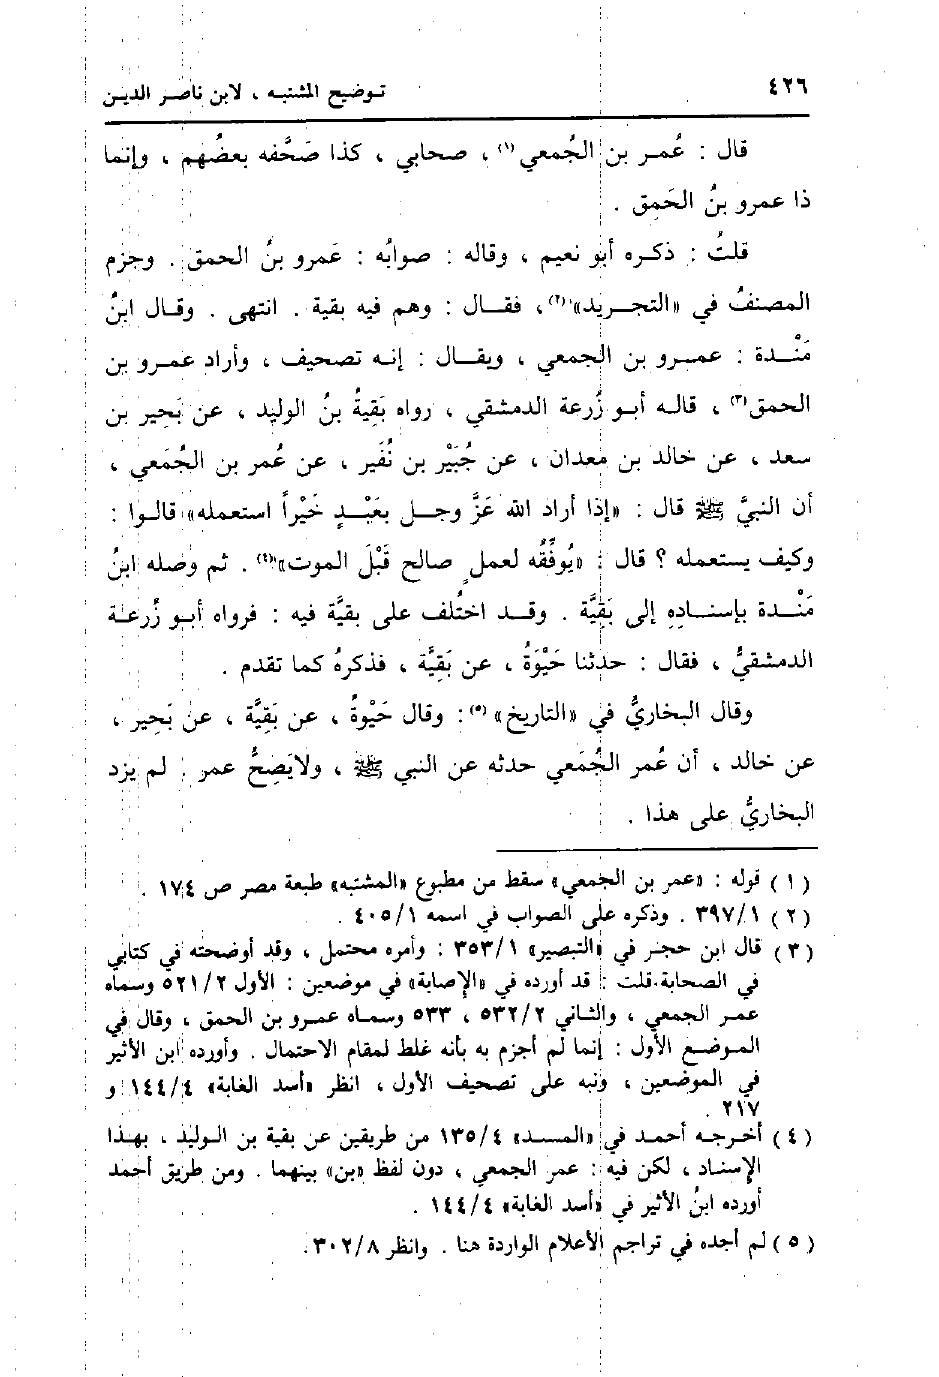 ٤٢٦
توضيح المشتبه ، لابن ناصر الدين
قال : عُمر بن الجُمعي(١) ، صحابي ، كذا صَحَّفه بعضُهم ، وإنما
ذا عمرو بنُ الحَمِق .
قلتُ : ذكره أبو نعيم ، وقاله : صوابُه : عَمرو بنُ الحمق . وجزم
المصنفُ في «التجريد»(٢)، فقال : وهم فيه بقية . انتهى . وقال ابنُ
مَنْدة : عمرو بن الجمعي ، ويقال : إنه تصحيف ، وأراد عمرو بن
الحمق(٣) ، قاله أبو زُرعة الدمشقي ، رواه بَقيةُ بنُ الوليد ، عن بَحير بن
سعد ، عن خالد بن معدان ، عن جُبَيْر بن نُفَير ، عن عُمر بن الجُمَعي ،
أن النبيَّ ﷺ قال : «إذا أراد الله عَزَّ وجل بعَبْدٍ خَيْراً استعمله» قالوا :
وكيف يستعمله ؟ قال : «يُوفِّقُه لعملٍ صالح قَبْلَ الموت»(٤) . ثم وصله ابنُ
مَنْدة بإسنادِه إلى بَقِيَّة . وقد اختُلف على بقيَّة فيه : فرواه أبو زُرعة
الدمشقيُّ ، فقال : حدثنا حَيْوَةُ ، عن بَقيَّة ، فذكرهُ كما تقدم .
وقال البخاريُّ في «التاريخ»(٥) : وقال حَيْوةُ ، عن بَقِيَّة ، عن بَحِير ،
عن خالد ، أن عُمر الجُمَعي حدثه عن النبي ﷺ ، ولايَصِحُّ عمر . لم يزد
البخاريُّ على هذا .
(١) قوله : «عمر بن الجمعي» سقط من مطبوع «المشتبه» طبعة مصر ص ١٧٤ .
(٢) ٣٩٧/١ . وذكره على الصواب في اسمه ٤٠٥/١ .
(٣) قال ابن حجر في «التبصير» ٣٥٣/١ : وأمره محتمل ، وقد أوضحته في كتابي
في الصحابة. قلت : قد أورده في «الإصابة» في موضعين : الأول ٥٢١/٢ وسماه
عمر الجمعي ، والثاني ٥٣٢/٢ ، ٥٣٣ وسماه عمرو بن الحمق ، وقال في
الموضع الأول : إنما لم أجزم به بأنه غلط لمقام الاحتمال . وأورده ابن الأثير
في الموضعين ، ونبه على تصحيف الأول ، انظر «أسد الغابة» ١٤٤/٤ و
٢١٧ .
(٤) أخرجه أحمد في «المسند» ١٣٥/٤ من طريقين عن بقية بن الوليد ، بهذا
الإسناد ، لكن فيه : عمر الجمعي ، دون لفظ «بن» بينهما . ومن طريق أحمد
أورده ابنُ الأثير في «أسد الغابة» ١٤٤/٤ .
(٥) لم أجده في تراجم الأعلام الواردة هنا . وانظر ٣٠٢/٨ .